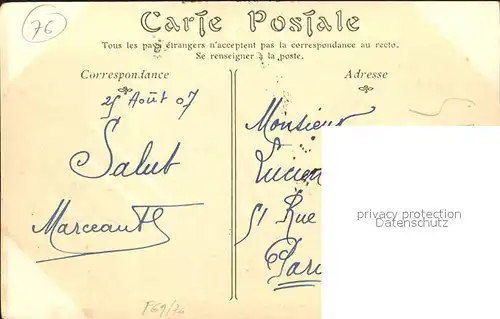 76
Carte Postale
Tous les pays étrangers n'acceptent pas la correspondance au recto.
Se renseigner à la poste.
Correspondance
Adresse
25 Août 07
Salut
Monsieur
Lucien
51 Rue
privacy protection
Datenschutz